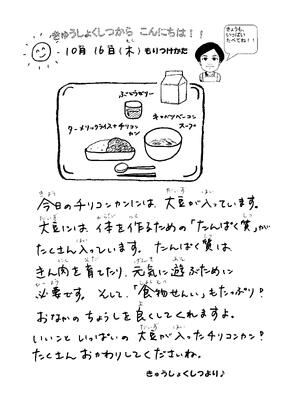 きゅうしょくしつから こんにちは！！
10月 16日(木) もりつけかた
きょうも、
いっぱい
たべてね！！
ぶどうゼリー
ターメリックライス+チリコン
カン
キャベツベーコン
スープ
今日のチリコンカンには、大豆が入っています。
大豆には、体を作るための「たんぱく質」が
たくさん入っています。 たんぱく質は
きん肉を育てたり、元気に遊ぶために
必要です。 そして、「食物せんい」もたっぷり？
おなかのちょうしを良くしてくれますよ。
いいこといっぱいの 大豆が入ったチリコンカン？
たくさん おかわりしてくださいね。
きゅうしょくしつより♪